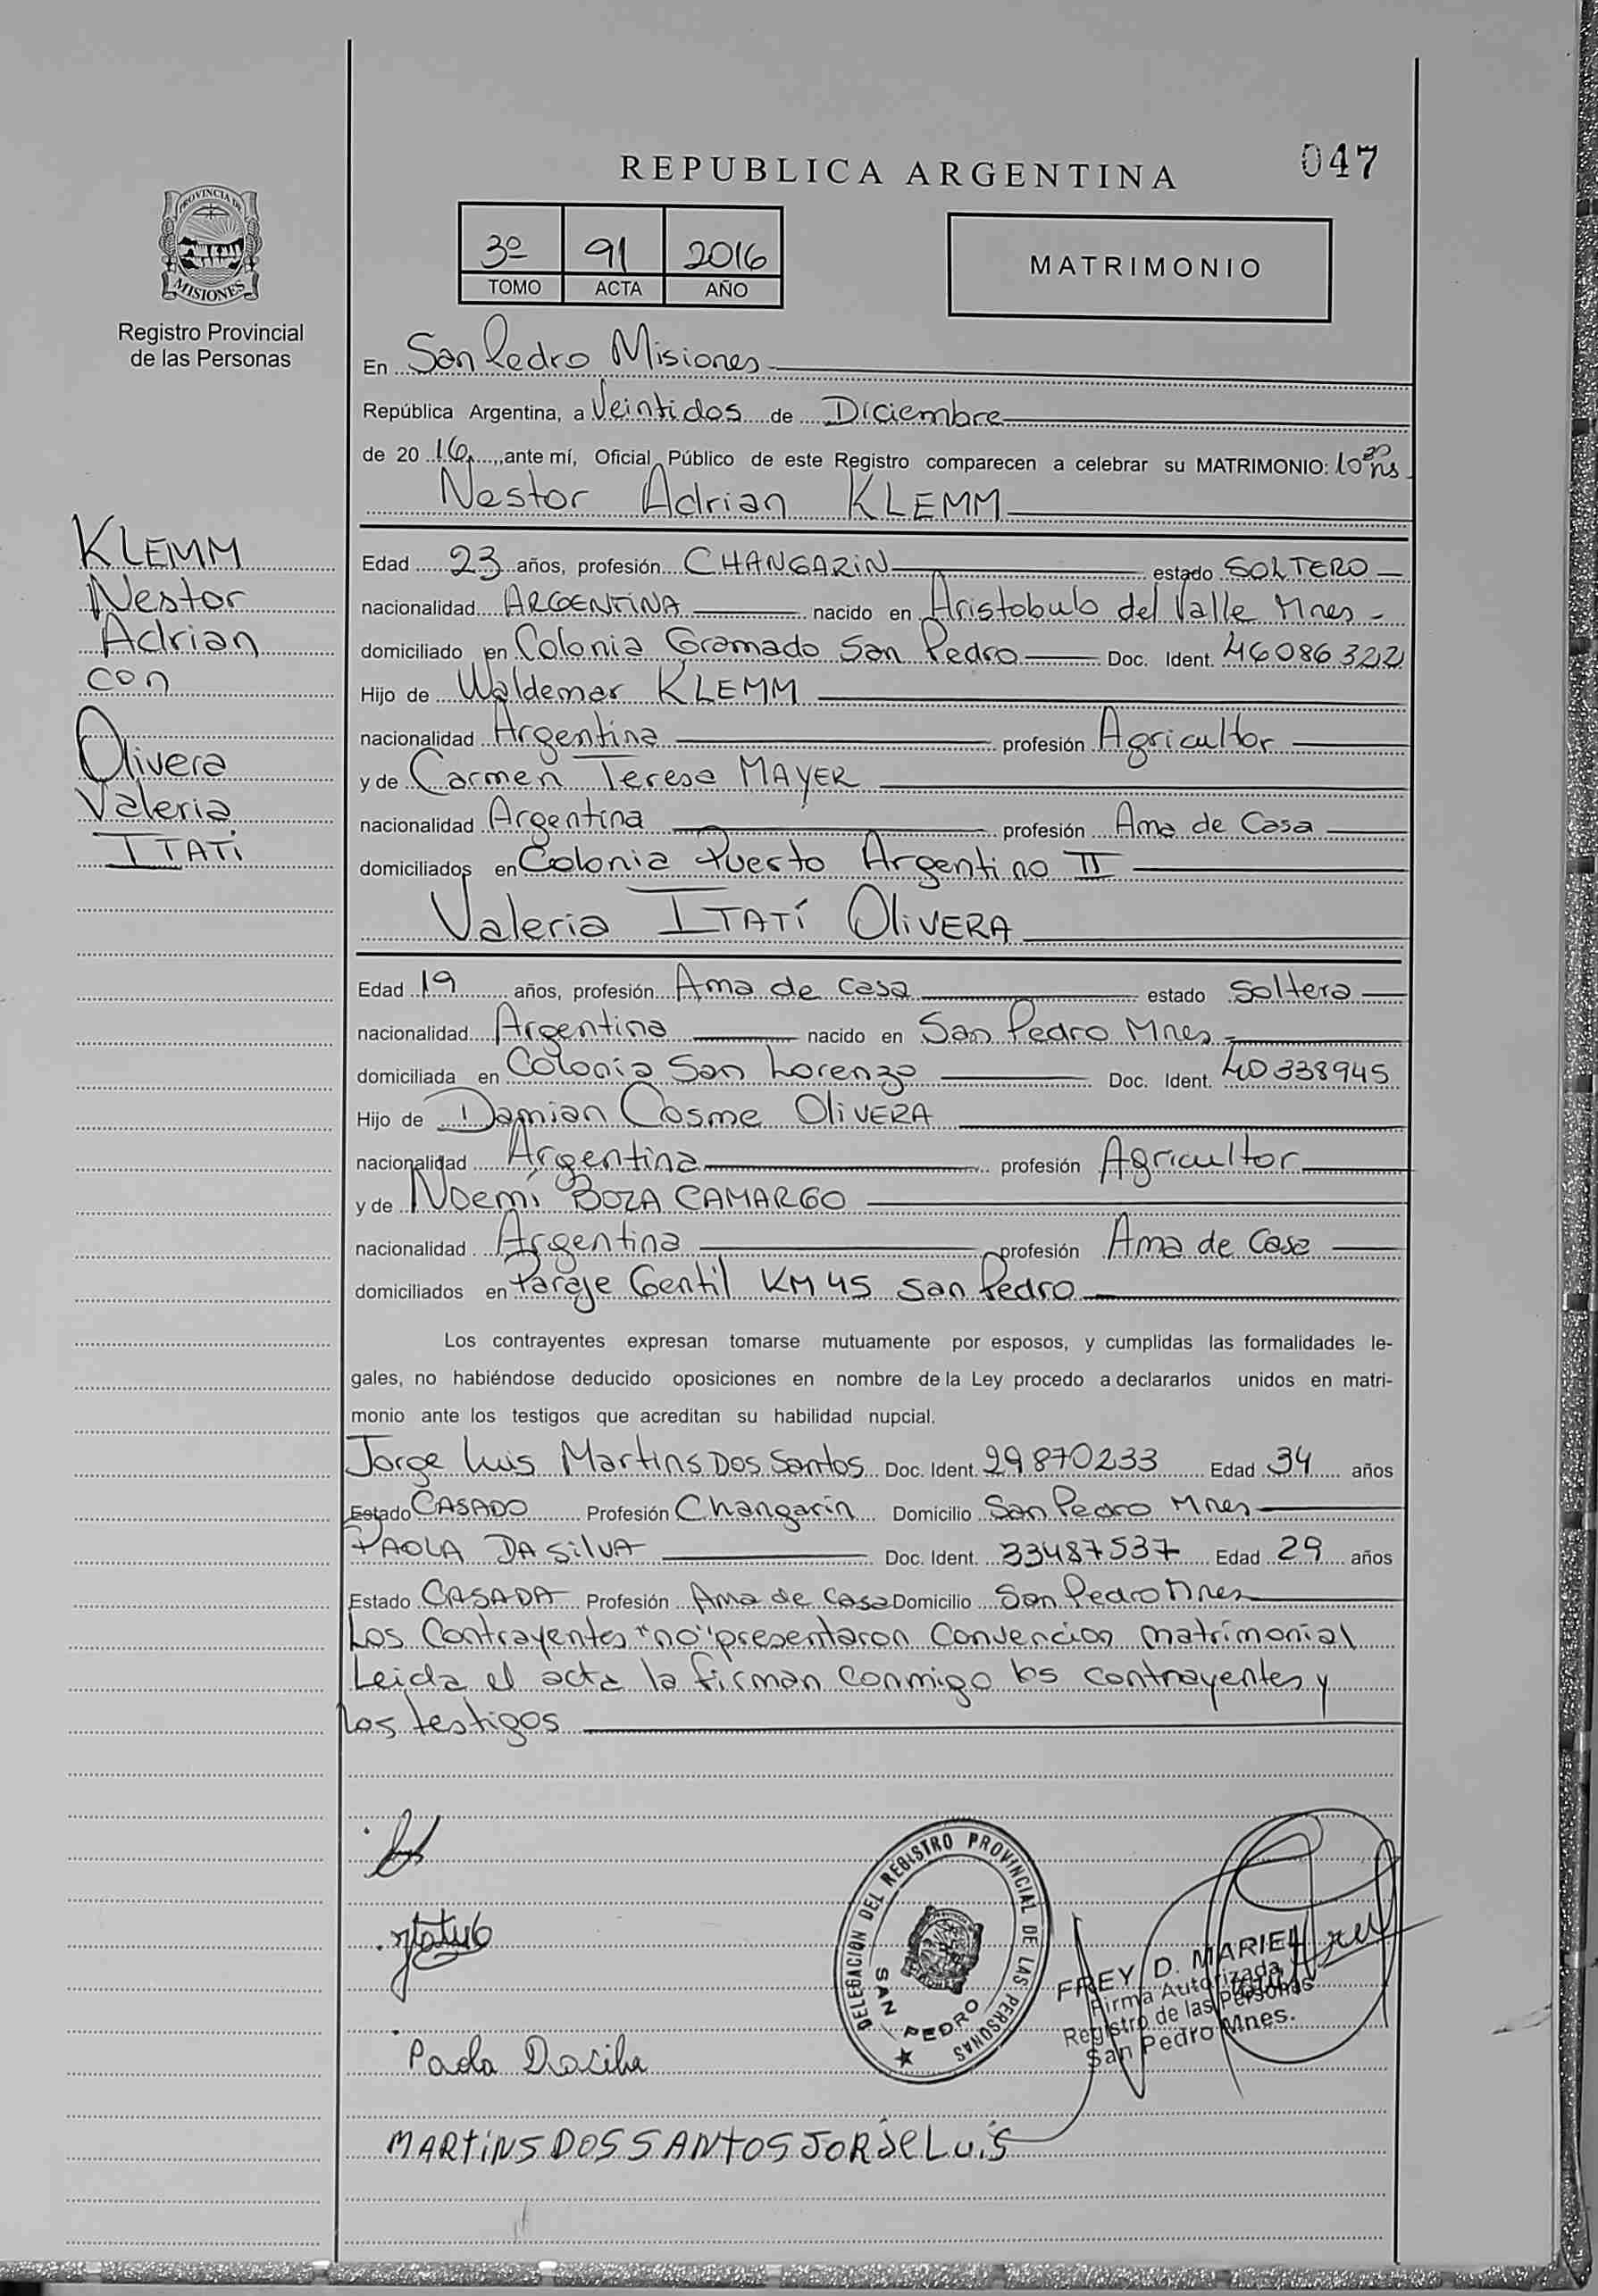 REPUBLICA ARGENTINA
047
PROVINCIA DE
MISIONES
Registro Provincial
de las Personas
3º 91 2016
TOMO ACTA AÑO
MATRIMONIO
En San Pedro Misiones
República Argentina, a Veintidos de Diciembre
de 20 16, ante mí, Oficial Público de este Registro comparecen a celebrar su MATRIMONIO: 10 30 hs
Nestor Adrian KLEMM
KLEMM
Nestor
Adrian
con
Olivera
Valeria
ITATI
Edad 23 años, profesión CHANGARIN estado SOLTERO
nacionalidad ARGENTINA nacido en Aristobulo del Valle Mnes
domiciliado en Colonia Gramado San Pedro Doc. Ident. 46086322
Hijo de Waldemar KLEMM
nacionalidad Argentina profesión Agricultor
y de Carmen Teresa MAYER
nacionalidad Argentina profesión Ama de Casa
domiciliados en Colonia Puerto Argentino II
Valeria ITATÍ OLIVERA
Edad 19 años, profesión Ama de casa estado Soltera
nacionalidad Argentina nacido en San Pedro Mnes
domiciliada en Colonia San Lorenzo Doc. Ident. 40338945
Hijo de Damian Cosme OLIVERA
nacionalidad Argentina profesión Agricultor
y de Noemí BOZA CAMARGO
nacionalidad Argentina profesión Ama de Casa
domiciliados en Paraje Gentil KM 45 San Pedro
Los contrayentes expresan tomarse mutuamente por esposos, y cumplidas las formalidades le-
gales, no habiéndose deducido oposiciones en nombre de la Ley procedo a declararlos unidos en matri-
monio ante los testigos que acreditan su habilidad nupcial.
Jorge Luis Martins Dos Santos Doc. Ident. 29870233 Edad 34 años
Estado CASADO Profesión Changarín Domicilio San Pedro Mnes
PAOLA DA SILVA Doc. Ident. 33487537 Edad 29 años
Estado CASADA Profesión Ama de casa Domicilio San Pedro Mnes
Los Contrayentes "no" presentaron Convencion matrimonial
Leida el acta la firman conmigo los contrayentes y
los testigos
DELEGACIÓN DEL REGISTRO PROVINCIAL DE LAS PERSONAS
SAN PEDRO
FREY D. MARIEL
Firma Autorizada
Registro de las Personas
San Pedro Mnes.
Paola Dasilva
MARTINS DOS SANTOS JORGE LUIS